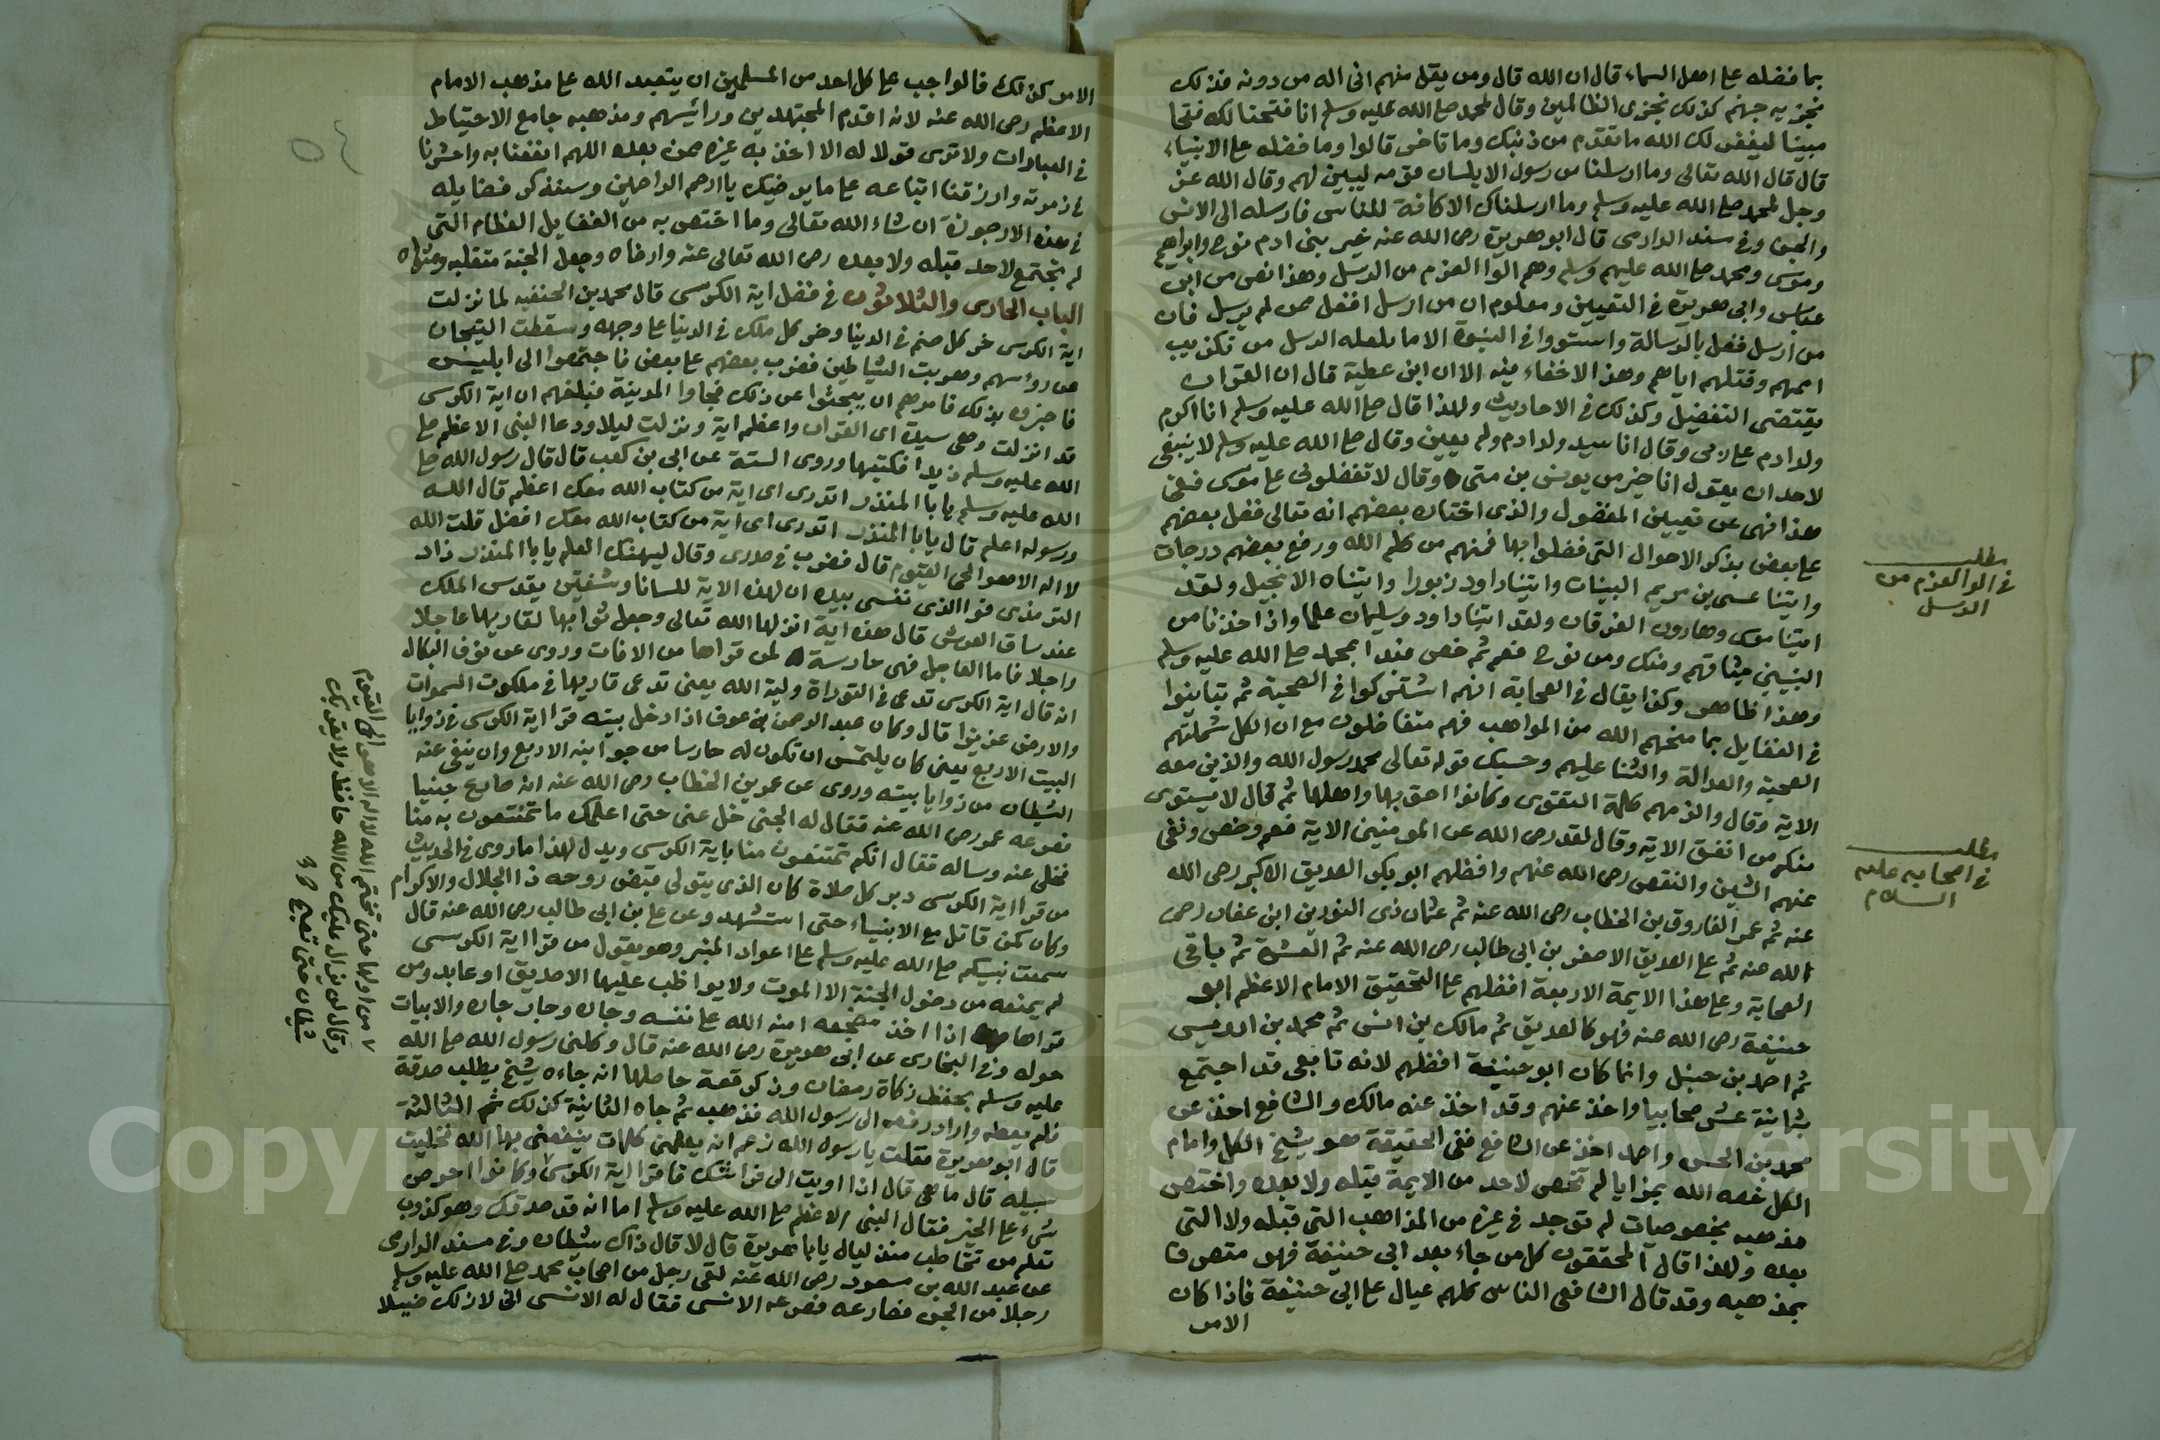 بما فضله على اهل السماء قال ان الله قال ومن يقل منهم اني اله من دونه فذلك
نجزيه جهنم كذلك نجزي الظالمين وقال لمحمد صلى الله عليه وسلم انا فتحنا لك فتحا
مبينا ليغفر لك الله ما تقدم من ذنبك وما تاخر قالوا وما فضله على الانبياء
قال قال الله تعالى وما ارسلنا من رسول الا بلسان قومه ليبين لهم وقال الله عز
وجل لمحمد صلى الله عليه وسلم وما ارسلناك الا كافة للناس فارسله الى الانس
والجن وفي سند الدارمي قال ابو هريرة رضى الله عنه خير بني ادم نوح وابراهيم
وموسى ومحمد صلى الله عليهم وسلم وهم الوا العزم من الرسل وهذا نص من ابن
عباس وابي هريرة في التعيين ومعلوم ان من ارسل افضل ممن لم يرسل فان
من ارسل فضل بالرسالة واستووا في النبوة الا ما يلقاه الرسل من تكذيب
اممهم وقتلهم اياهم وهذا لا خفاء فيه الا ان ابن عطية قال ان القران
يقتضي التفضيل وكذلك في الاحاديث ولهذا قال صلى الله عليه وسلم انا اكرم
ولد ادم على ربي وقال انا سيد ولد ادم ولم يعين وقال صلى الله عليه وسلم لا ينبغي
لاحد ان يقول انا خير من يونس بن متى وقال لا تفضلوني على موسى ففي
هذا نهى عن تعيين المفضول والذي اختاره بعضهم انه تعالى فضل بعضهم
على بعض بذكر الاحوال التي فضلوا بها فمنهم من كلم الله ورفع بعضهم درجات
وايتنا عسى بن مريم البينات وايتينا داود زبورا وايتناه الانجيل ولقد
ايتنا موسى وهارون الفرقان ولقد ايتنا داود وسليمان علما واذا اخذنا من
النبيين ميثاقهم ومنك ومن نوح فعم ثم خص مبتدا بمحمد صلى الله عليه وسلم
وهذا ظاهر وكذا يقال في الصحابة انهم اشتركوا في الصحبة ثم تباينوا
في الفضايل بما منحهم الله من المواهب فهم متفاضلون مع ان الكل شملتهم
الصحبة والعدالة والثنا عليهم وحسبك قوله تعالى محمد رسول الله والذين معه
الاية وقال والزمهم كلمة التقوى وكانوا احق بها واهلها ثم قال لا يستوى
منكم من انفق الاية وقال لقد رضى الله عن المومنين الاية فعم وخص ونفى
عنهم الشين والنقص رضى الله عنهم وافضلهم ابو بكر الصديق الاكبر رضى الله
عنه ثم عمر الفاروق بن الخطاب رضى الله عنه ثم عثمان ذي النورين ابن عفان رضى
الله عنه ثم على الصديق الاصغر بن ابى طالب رضى الله عنه ثم العشرة ثم باقي
الصحابة وعلى هذا الايمة الاربعة افضلهم على التحقيق الامام الاعظم ابو
حنيفة رضى الله عنه فهو كالصديق ثم مالك بن انس ثم محمد بن ادريس
ثم احمد بن حنبل وانما كان ابو حنيفة افضلهم لانه تابعى قد اجتمع
بثمانية عشر صحابيا واخذ عنهم وقد اخذ عنه مالك والشافع اخذ عن
محمد بن الحسن واحمد اخذ عن الشافع ففى الحقيقة هو شيخ الكل وامام
الكل خصه الله بمزايا لم تخص لاحد من الايمة قبله ولا بعده واختص
مذهبه بخصوصيات لم توجد في غيره من المذاهب التي قبله ولا التى
بعده ولهذا قال المحققون كل من جاء بعد ابى حنيفة فهو متصرف
بمذهبه وقد قال الشافعى الناس كلهم عيال على ابى حنيفة فاذا كان
الامر
مطلب
في الوا العزم من
الرسل
مطلب
في اصحابه عليه
السلام
الامر كذلك فالواجب على كل احد من المسلمين ان يتعبد الله على مذهب الامام
الاعظم رضى الله عنه لانه اقدم المجتهدين ورائيسهم ومذهبه جامع الاحتياط
في العبادات ولا ترى قولا له الا اخذ به غيره ممن بعده اللهم انفعنا به واحشرنا
في زمرته وارزقنا اتباعه على ما يرضيك يا ارحم الراحمين وسنذكر فضايله
في هذه الارجوزة ان شاء الله تعالى وما اختص به من الفضايل العظام التي
لم تجتمع لاحد قبله ولا بعده رضى الله تعالى عنه وارضاه وجعل الجنة متقلبه ومثواه
الباب الحادى والثلاثون في فضل اية الكرسى قال محمد بن الحنفيه لما نزلت
اية الكرسى خر كل صنم في الدنيا وخر كل ملك في الدنيا على وجهه وسقطت التيجان
عن رؤسهم وهربت الشياطين فضرب بعضهم على بعض فاجتمعوا الى ابليس
فاخبروه بذلك فامرهم ان يبحثوا عن ذلك فجاوا المدينة فبلغهم ان اية الكرسى
قد انزلت وهى سيدة اى القران واعظم اية ونزلت ليلا ودعا النبى الاعظم صلى
الله عليه وسلم زيدا فكتبها وروى الستة عن ابى بن كعب قال قال رسول الله صلى
الله عليه وسلم يابا المنذر اتدرى اى اية من كتاب الله معك اعظم قال الله
ورسوله اعلم قال يابا المنذر اتدرى اى اية من كتاب الله معك افضل قلت الله
لا اله الا هو الحى القيوم قال فضرب في صدرى وقال ليهنك العلم يابا المنذر زاد
الترمذى فوالذى نفسى بيده ان لهذه الاية للسانا وشفتين يقدس الملك
عند ساق العرش قال هذه اية انزلها الله تعالى وجعل ثوابها لقاريها عاجلا
واجلا فاما العاجل فهى حارسة لمن قراها من الافات وروى عن نوف البكالى
انه قال اية الكرسى تدعى في التوراة ولية الله يعنى تدعى قاريها في ملكوت السموات
والارض عزيزا قال وكان عبد الرحمن بن عوف اذا دخل بيته قرا اية الكرسى في زوايا
البيت الاربع يعنى كان يلتمس ان تكون له حارسا من جوانبه الاربع وان ينفى عنه
الشيطان من زوايا بيته وروى عن عمر بن الخطاب رضى الله عنه انه صارع جنيا
فصرعه عمر رضى الله عنه فقال له الجنى خل عنى حتى اعلمك ما تمتنعون به منا
فخلى عنه وساله فقال انكم تمتنعون منا باية الكرسى ويدل لهذا ما روى في الحديث
من قرا اية الكرسى دبر كل صلاة كان الذى يتولى قبض روحه ذا الجلال والاكرام
وكان كمن قاتل مع الانبياء حتى استشهد وعن على بن ابى طالب رضى الله عنه قال
سمعت نبيكم صلى الله عليه وسلم على اعواد المنبر وهو يقول من قرا اية الكرسى
لم يمنعه من دخول الجنة الا الموت ولا يواظب عليها الا صديق او عابد ومن
قراها اذا اخذ مضجعه امنه الله على نفسه وجاره وجار جاره والابيات
حوله وفي البخارى عن ابى هريرة رضى الله عنه قال وكلنى رسول الله صلى الله
عليه وسلم بحفظ زكاة رمضان وذكر قصة حاصلها انه جاءه شيخ يطلب صدقة
فلم يعطه واراد رفعه الى رسول الله فذهب ثم جاه الثانية كذلك ثم الثالثة
قال ابو هريرة فقلت يا رسول الله زعم انه يعلمنى كلمات ينفعنى بها الله فخليت
سبيله قال ما هى قال اذا اويت الى فراشك فاقرا اية الكرسى ٧ وكانوا احرص
شىء على الخير فقال النبى الاعظم صلى الله عليه وسلم اما انه قد صدقك وهو كذوب
تعلم من تخاطب منذ ليال يابا هريرة قال لا قال ذاك شيطان وفي مسند الدارمى
عن عبد الله بن مسعود رضى الله عنه لقى رجل من اصحاب محمد صلى الله عليه وسلم
رجلا من الجن فصارعه فصرعه الانسى فقال له الانسى انى لاراك ضييلا
٧ من اولها حتى تختم الله لا اله الا هو الحى القيوم
وقال لن يزال عليك من الله حافظ ولا يقربك
شيطان حتى تصبح صح
٥٤
Copyright © King Saud University